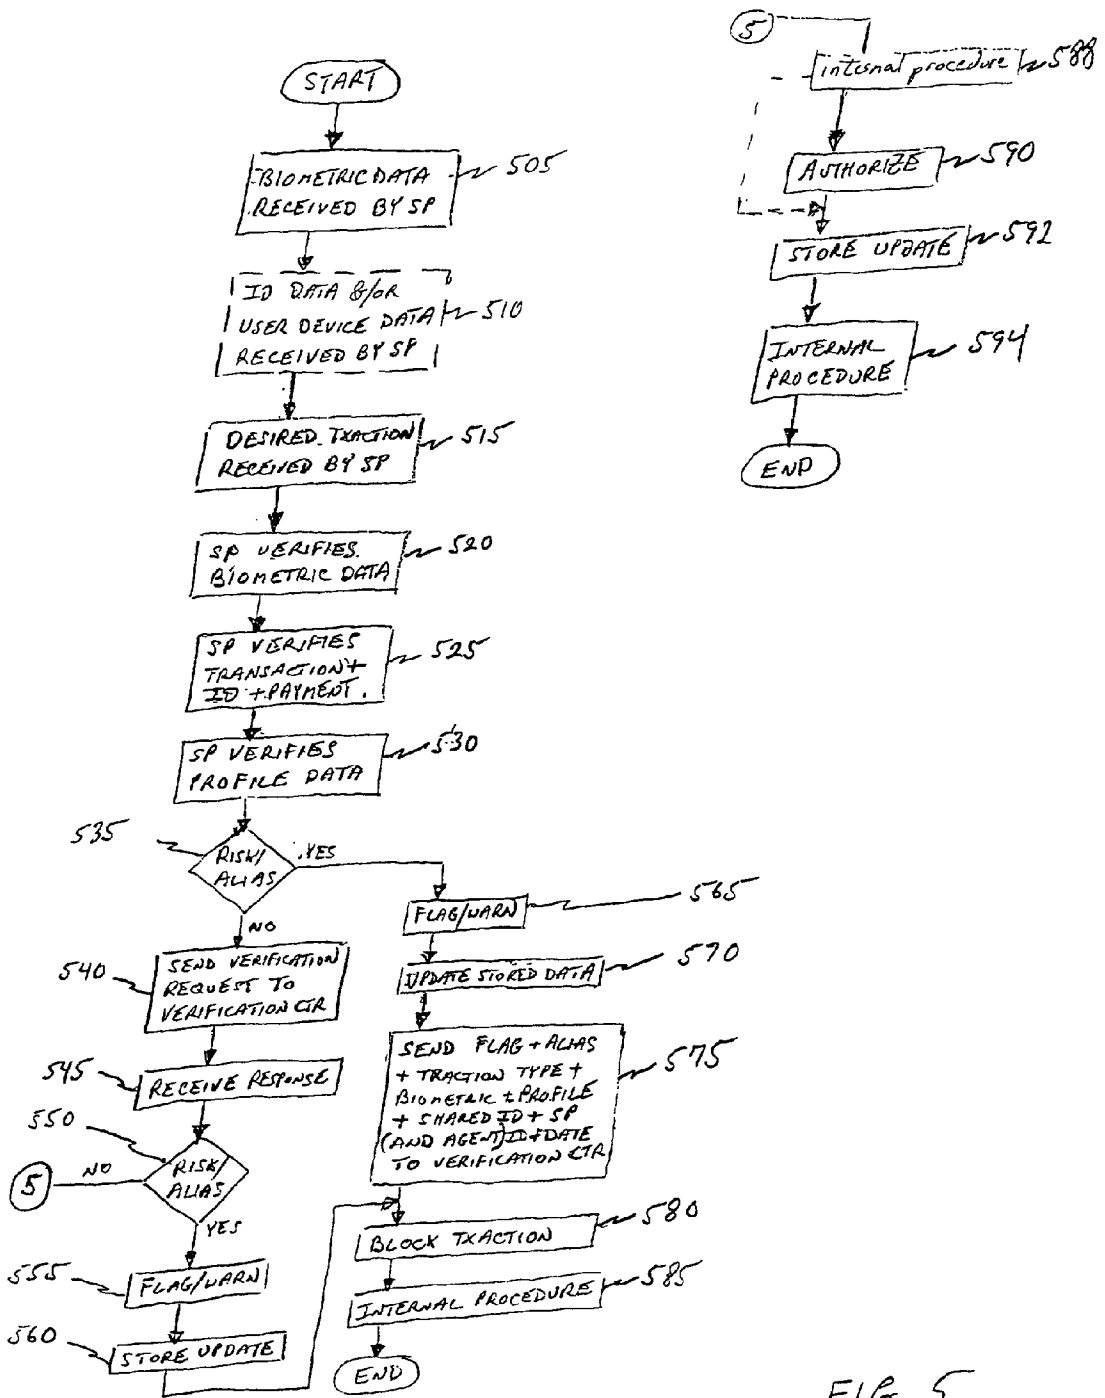 START
BIOMETRIC DATA
RECEIVED BY SP
505
ID DATA &/OR
USER DEVICE DATA
RECEIVED BY SP
510
DESIRED TXACTION
RECEIVED BY SP
515
SP VERIFIES
BIOMETRIC DATA
520
SP VERIFIES
TRANSACTION +
ID + PAYMENT.
525
SP VERIFIES
PROFILE DATA
530
535
RISK/
ALIAS
YES
NO
540
SEND VERIFICATION
REQUEST TO
VERIFICATION CTR
545
RECEIVE RESPONSE
550
RISK/
ALIAS
NO
5
YES
555
FLAG/WARN
560
STORE UPDATE
FLAG/WARN
565
UPDATE STORED DATA
570
SEND FLAG + ALIAS
+ TRACTION TYPE +
BIOMETRIC + PROFILE
+ SHARED ID + SP
(AND AGENT) ID + DATE
TO VERIFICATION CTR
575
BLOCK TXACTION
580
INTERNAL PROCEDURE
585
END
5
internal procedure
588
AUTHORIZE
590
STORE UPDATE
592
INTERNAL
PROCEDURE
594
END
FIG 5